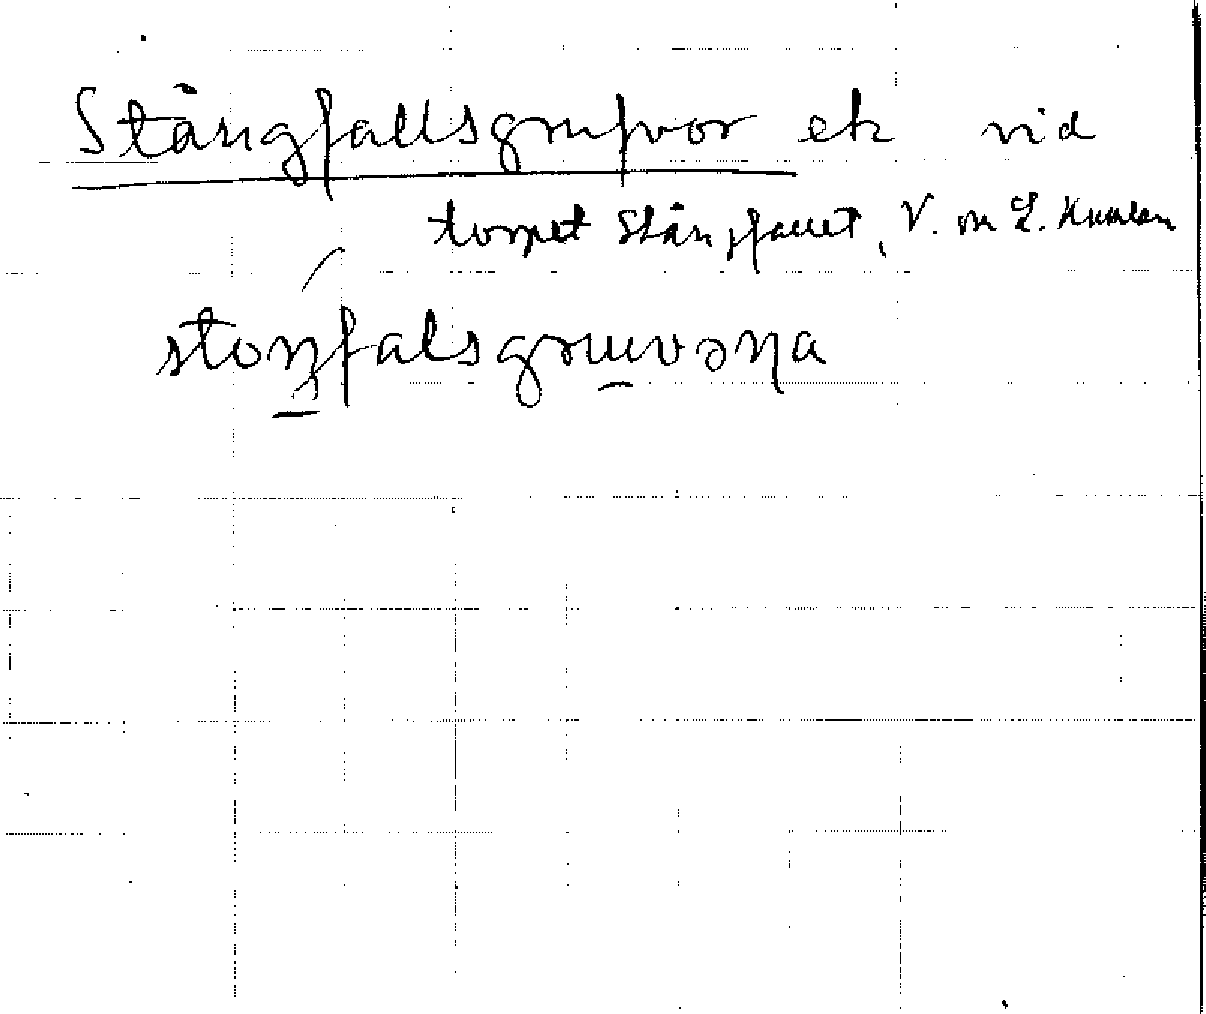 Stångfallsgrufvor ek vid
torpet Stångfallet, V. om L.
stoŋfalsgruvəɳa